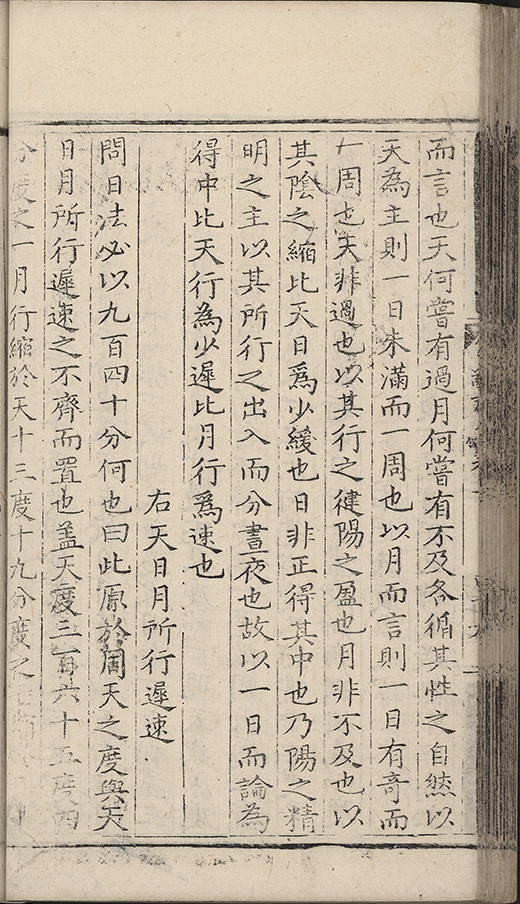 而言也天何嘗有過月何嘗有不及各循其性之自然以
天為主則一日未滿而一周也以月而言則一日有奇而
一周也天非過也以其行之健陽之盈也月非不及也以
其陰之縮比天日爲少緩也日非正得其中也乃陽之精
明之主以其所行之出入而分晝夜也故以一日而論為
得中比天行為少遲比月行爲速也
右天日月所行遲速
問日法必以九百四十分何也曰此原於周天之度與天
日月所行遲速之不齊而置也盖天度三百六十五度四
分度之一月行縮於天十三度十九分度之七